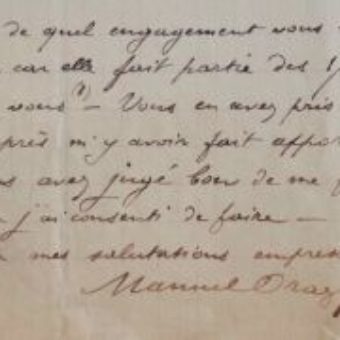 de quel engagement vous
car elle fait partie des
vous (1) — Vous en avez pris
près m'y avoir fait appor
s avez jugé bon de me
j'ai consenti de faire —
mes salutations empres
Manuel Oraz